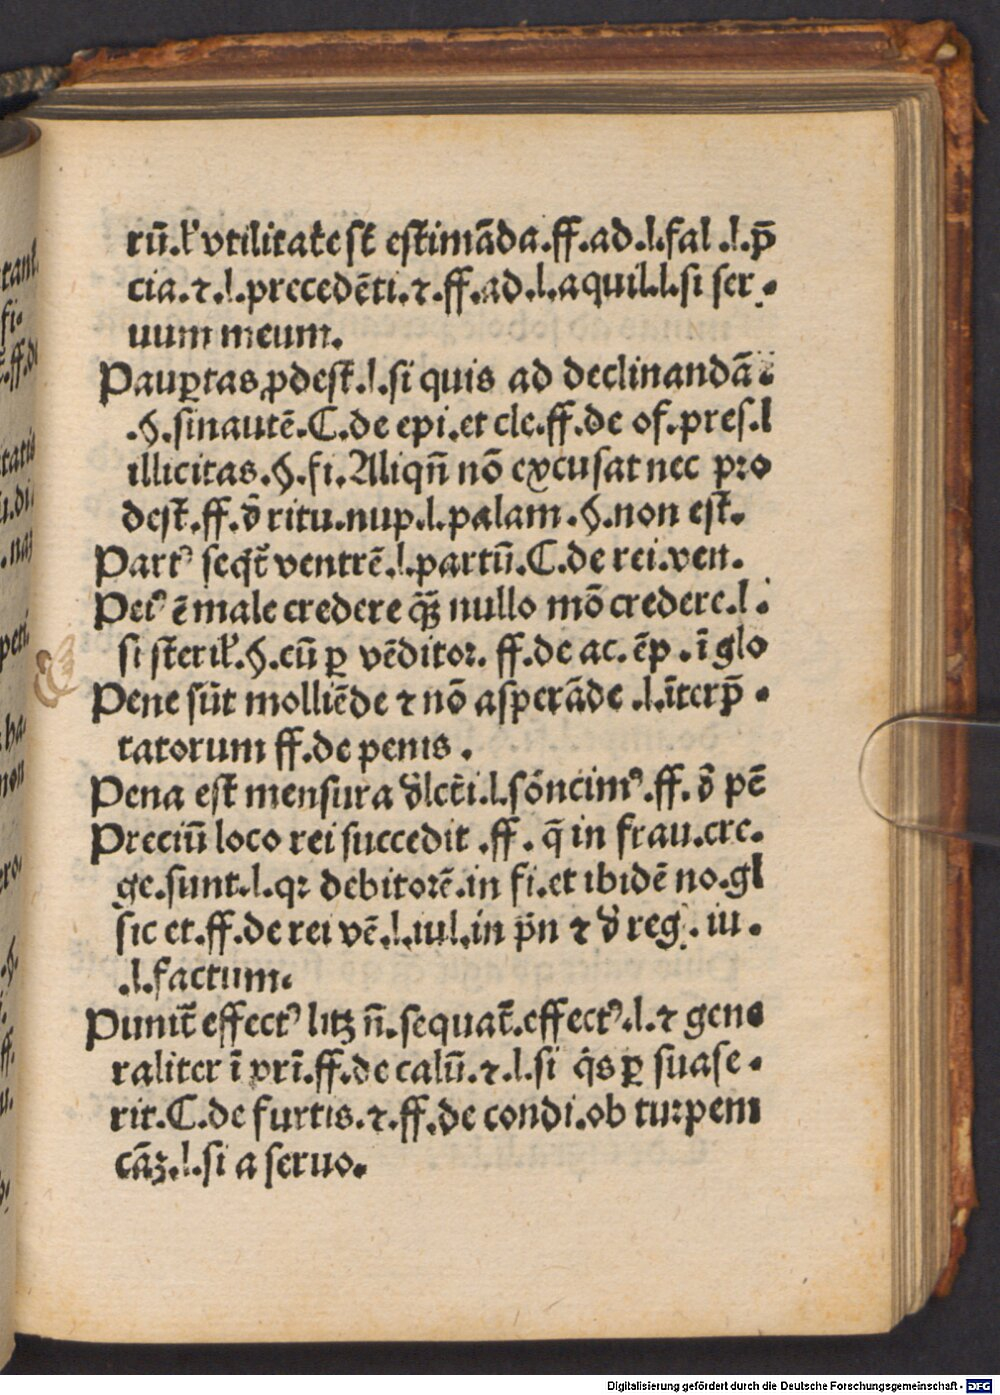 rū.ł vtilitat̄e est estimāda.ff.ad.l.fal.l.p̄
cia.⁊.l.precedēti.⁊.ff.ad.l.aquil.l.si ser.
uum meum.
Paup̲tas ꝓdest.l.si quis ad declinandā.
.§.sinautē.C.de epi.et cle.ff.de of.pres.l
illicitas.§.fi.Aliqn̄ nō excusat nec pro
dest.ff.ꝺ̄ ritu.nup.l.palam.§.non est.
Partꝰ seqt̄ ventrē.l.partū.C.de rei.ven.
Peiꝰ ē male credere q̄ꝫ nullo mō credere.l.
si steril̓.§.cū ꝑ vēditor. ff.de ac.ēp.ī glo
Pene sūt molliēde ⁊ nō asperāde.l.īterp̄.
tatorum ff.de penis.
Pena est mensura ꝺ̓lct̄i.l.sōncimꝰ.ff.ꝺ̄ pē
Preciū loco rei succedit.ff.q̄ in frau.cre.
ge.sunt.l.qꝛ debitorē.in fi.et ibidē no.gl
sic et.ff.de rei vē.l.iul.in pn̄ ⁊ ꝺ̓ reg.iu.
.l.factum.
Punit̄ effectꝰ litꝫ n̄.sequat̄.effectꝰ.l.⁊ gene
raliter ī prī.ff.de calū.⁊.l.si q̇s ꝑ suase.
rit.C.de furtis.⁊.ff.de condi.ob turpem
cāꝫ.l.si a seruo.
Digitalisierung gefördert durch die Deutsche Forschungsgemeinschaft - DFG